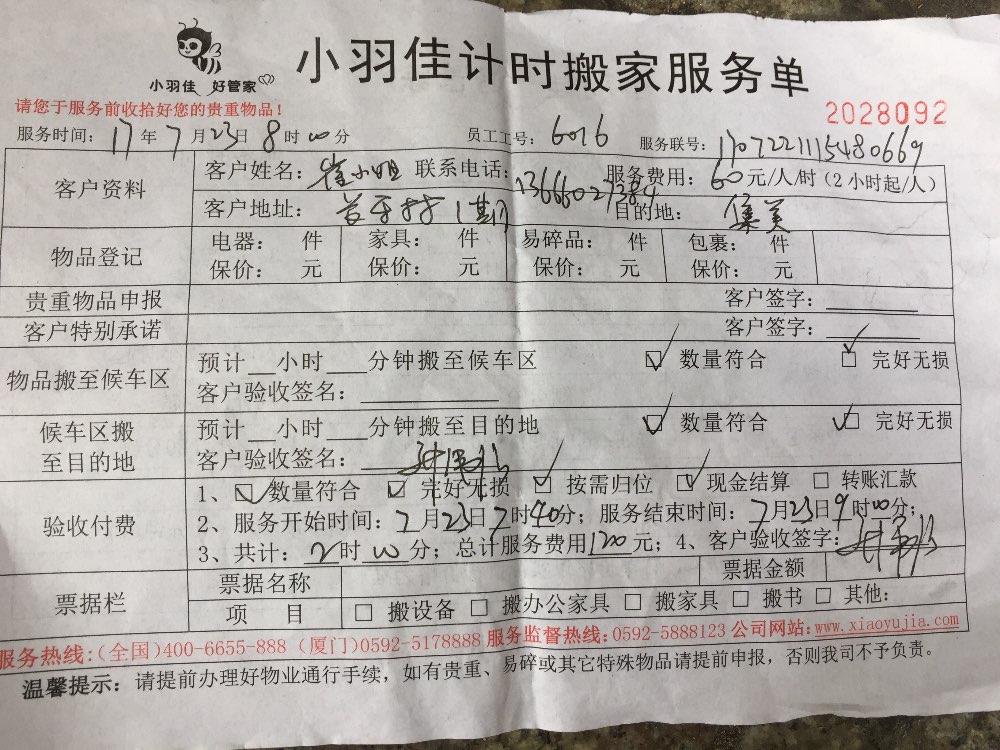 小羽佳 好管家
小羽佳计时搬家服务单
请您于服务前收拾好您的贵重物品！
2028092
服务时间：17年7月23日8时00分 员工工号：6016 服务联号：1707221115480669
客户资料
客户姓名：崔小姐 联系电话：13666027384 服务费用：60元/人/时（2小时起/人）
客户地址： 目的地：集美
物品登记
电器： 件 家具： 件 易碎品： 件 包裹： 件
保价： 元 保价： 元 保价： 元 保价： 元
贵重物品申报 客户签字：
客户特别承诺 客户签字：
物品搬至候车区
预计__小时___分钟搬至候车区 ☑ 数量符合 ☑ 完好无损
客户验收签名：
候车区搬至目的地
预计__小时___分钟搬至目的地 ☑ 数量符合 ☑ 完好无损
客户验收签名：
验收付费
1、☑数量符合 ☑ 完好无损 ☑ 按需归位 ☑ 现金结算 □ 转账汇款
2、服务开始时间：7月23日7时40分；服务结束时间：7月23日9时00分；
3、共计：2时00分；总计服务费用120元；4、客户验收签字：
票据栏
票据名称 票据金额
项 目 □ 搬设备 □ 搬办公家具 □ 搬家具 □ 搬书 □ 其他：
服务热线：(全国)400-6655-888 (厦门)0592-5178888 服务监督热线:0592-5888123 公司网站:www.xiaoyujia.com
温馨提示：请提前办理好物业通行手续，如有贵重、易碎或其它特殊物品请提前申报，否则我司不予负责。